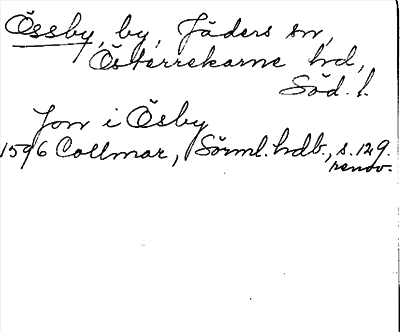 Össby, by, Jäders sn,
Österrekarne hd,
Söd. l.
Jon i Ösby
1596 Collmar, Sörml. hdb., s. 129.
renov.